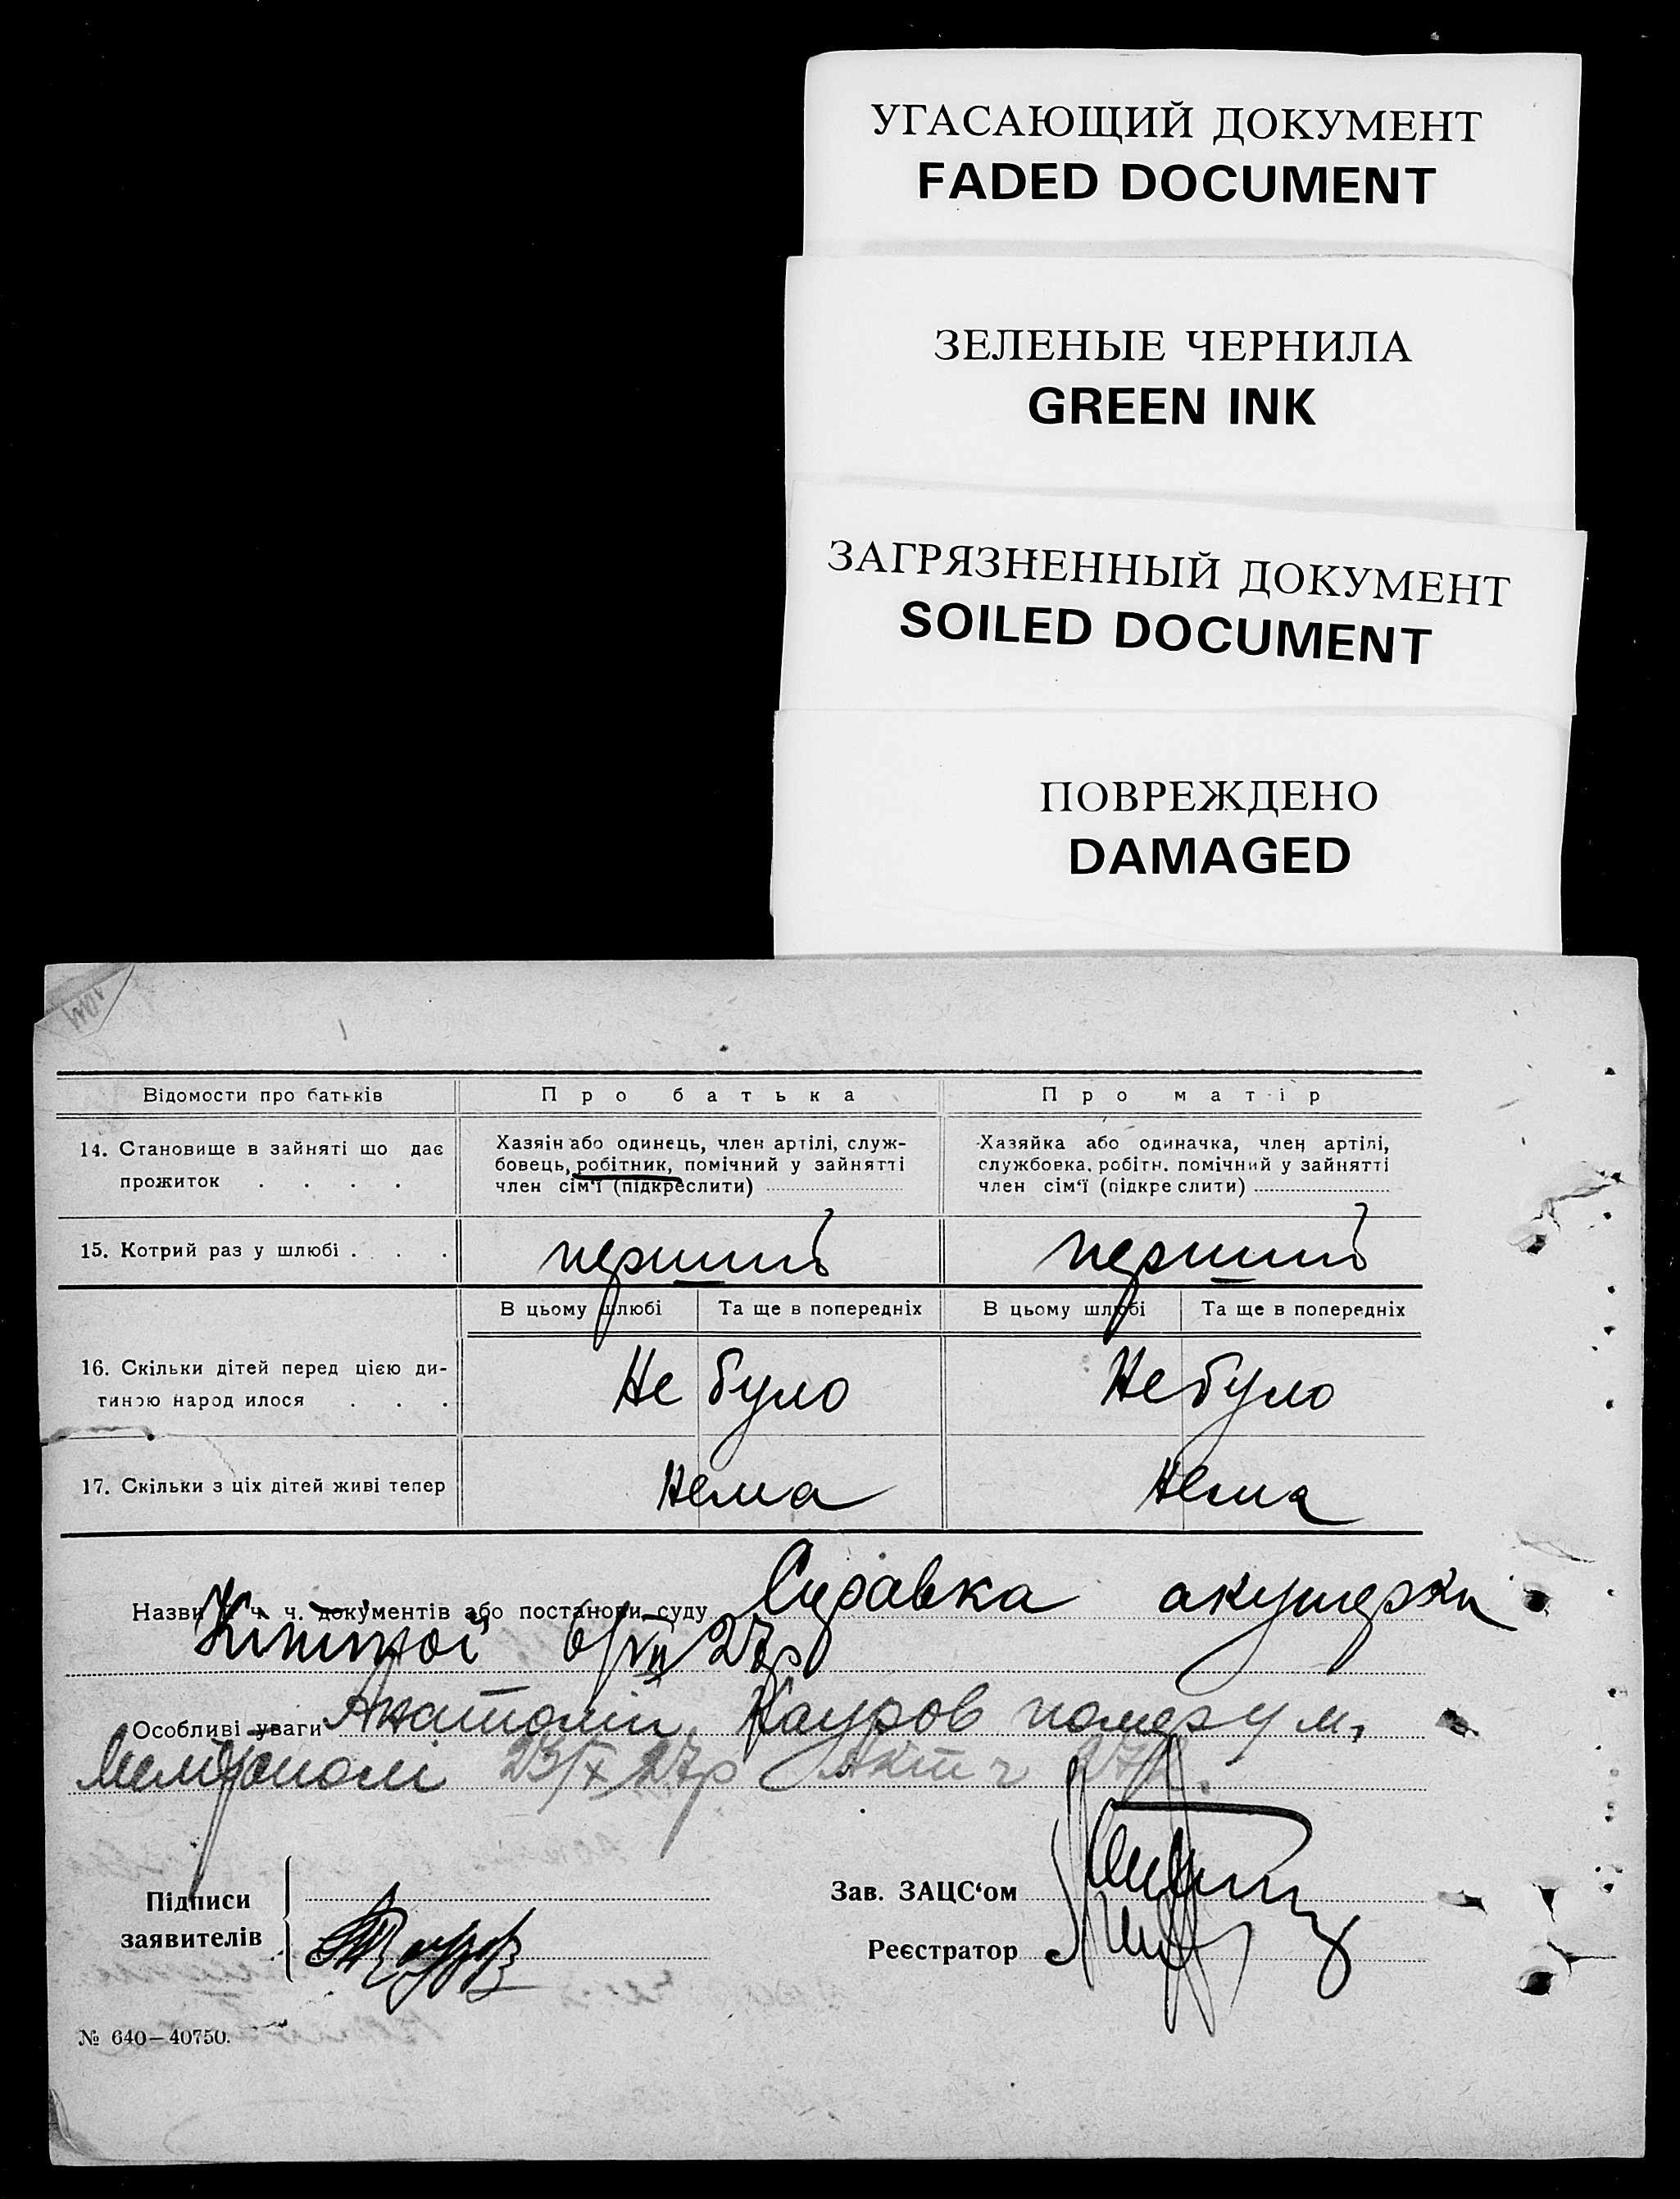 УГАСАЮЩИЙ ДОКУМЕНТ
FADED DOCUMENT
ЗЕЛЕНЫЕ ЧЕРНИЛА
GREEN INK
ЗАГРЯЗНЕННЫЙ ДОКУМЕНТ
SOILED DOCUMENT
ПОВРЕЖДЕНО
DAMAGED
Відомости про батьків
Про батька
Про матір
14. Становище в зайняті що дає
прожиток . . . .
Хазяїн або одинець, член артілі, служ-
бовець, робітник, помічний у зайнятті
член сім'ї (підкреслити)
Хазяйка або одиначка, член артілі,
службовка, робітн. помічний у зайнятті
член сім'ї (підкреслити)
15. Котрий раз у шлюбі . . .
перший
перший
В цьому шлюбі
Та ще в попередніх
В цьому шлюбі
Та ще в попередніх
16. Скільки дітей перед цією ди-
тиною народилося . . .
Не було
Не було
17. Скільки з ціх дітей живі тепер
Нема
Нема
Назви ч. ч. документів або постанови суду Справка акушерки
6/VII 27р
Особливі уваги Анатолій Кауров помер у м.
Мелітополі 23/X 27р Акт ч
Підписи
заявителів
Зав. ЗАЦС'ом
Реєстратор
№ 640—40750.